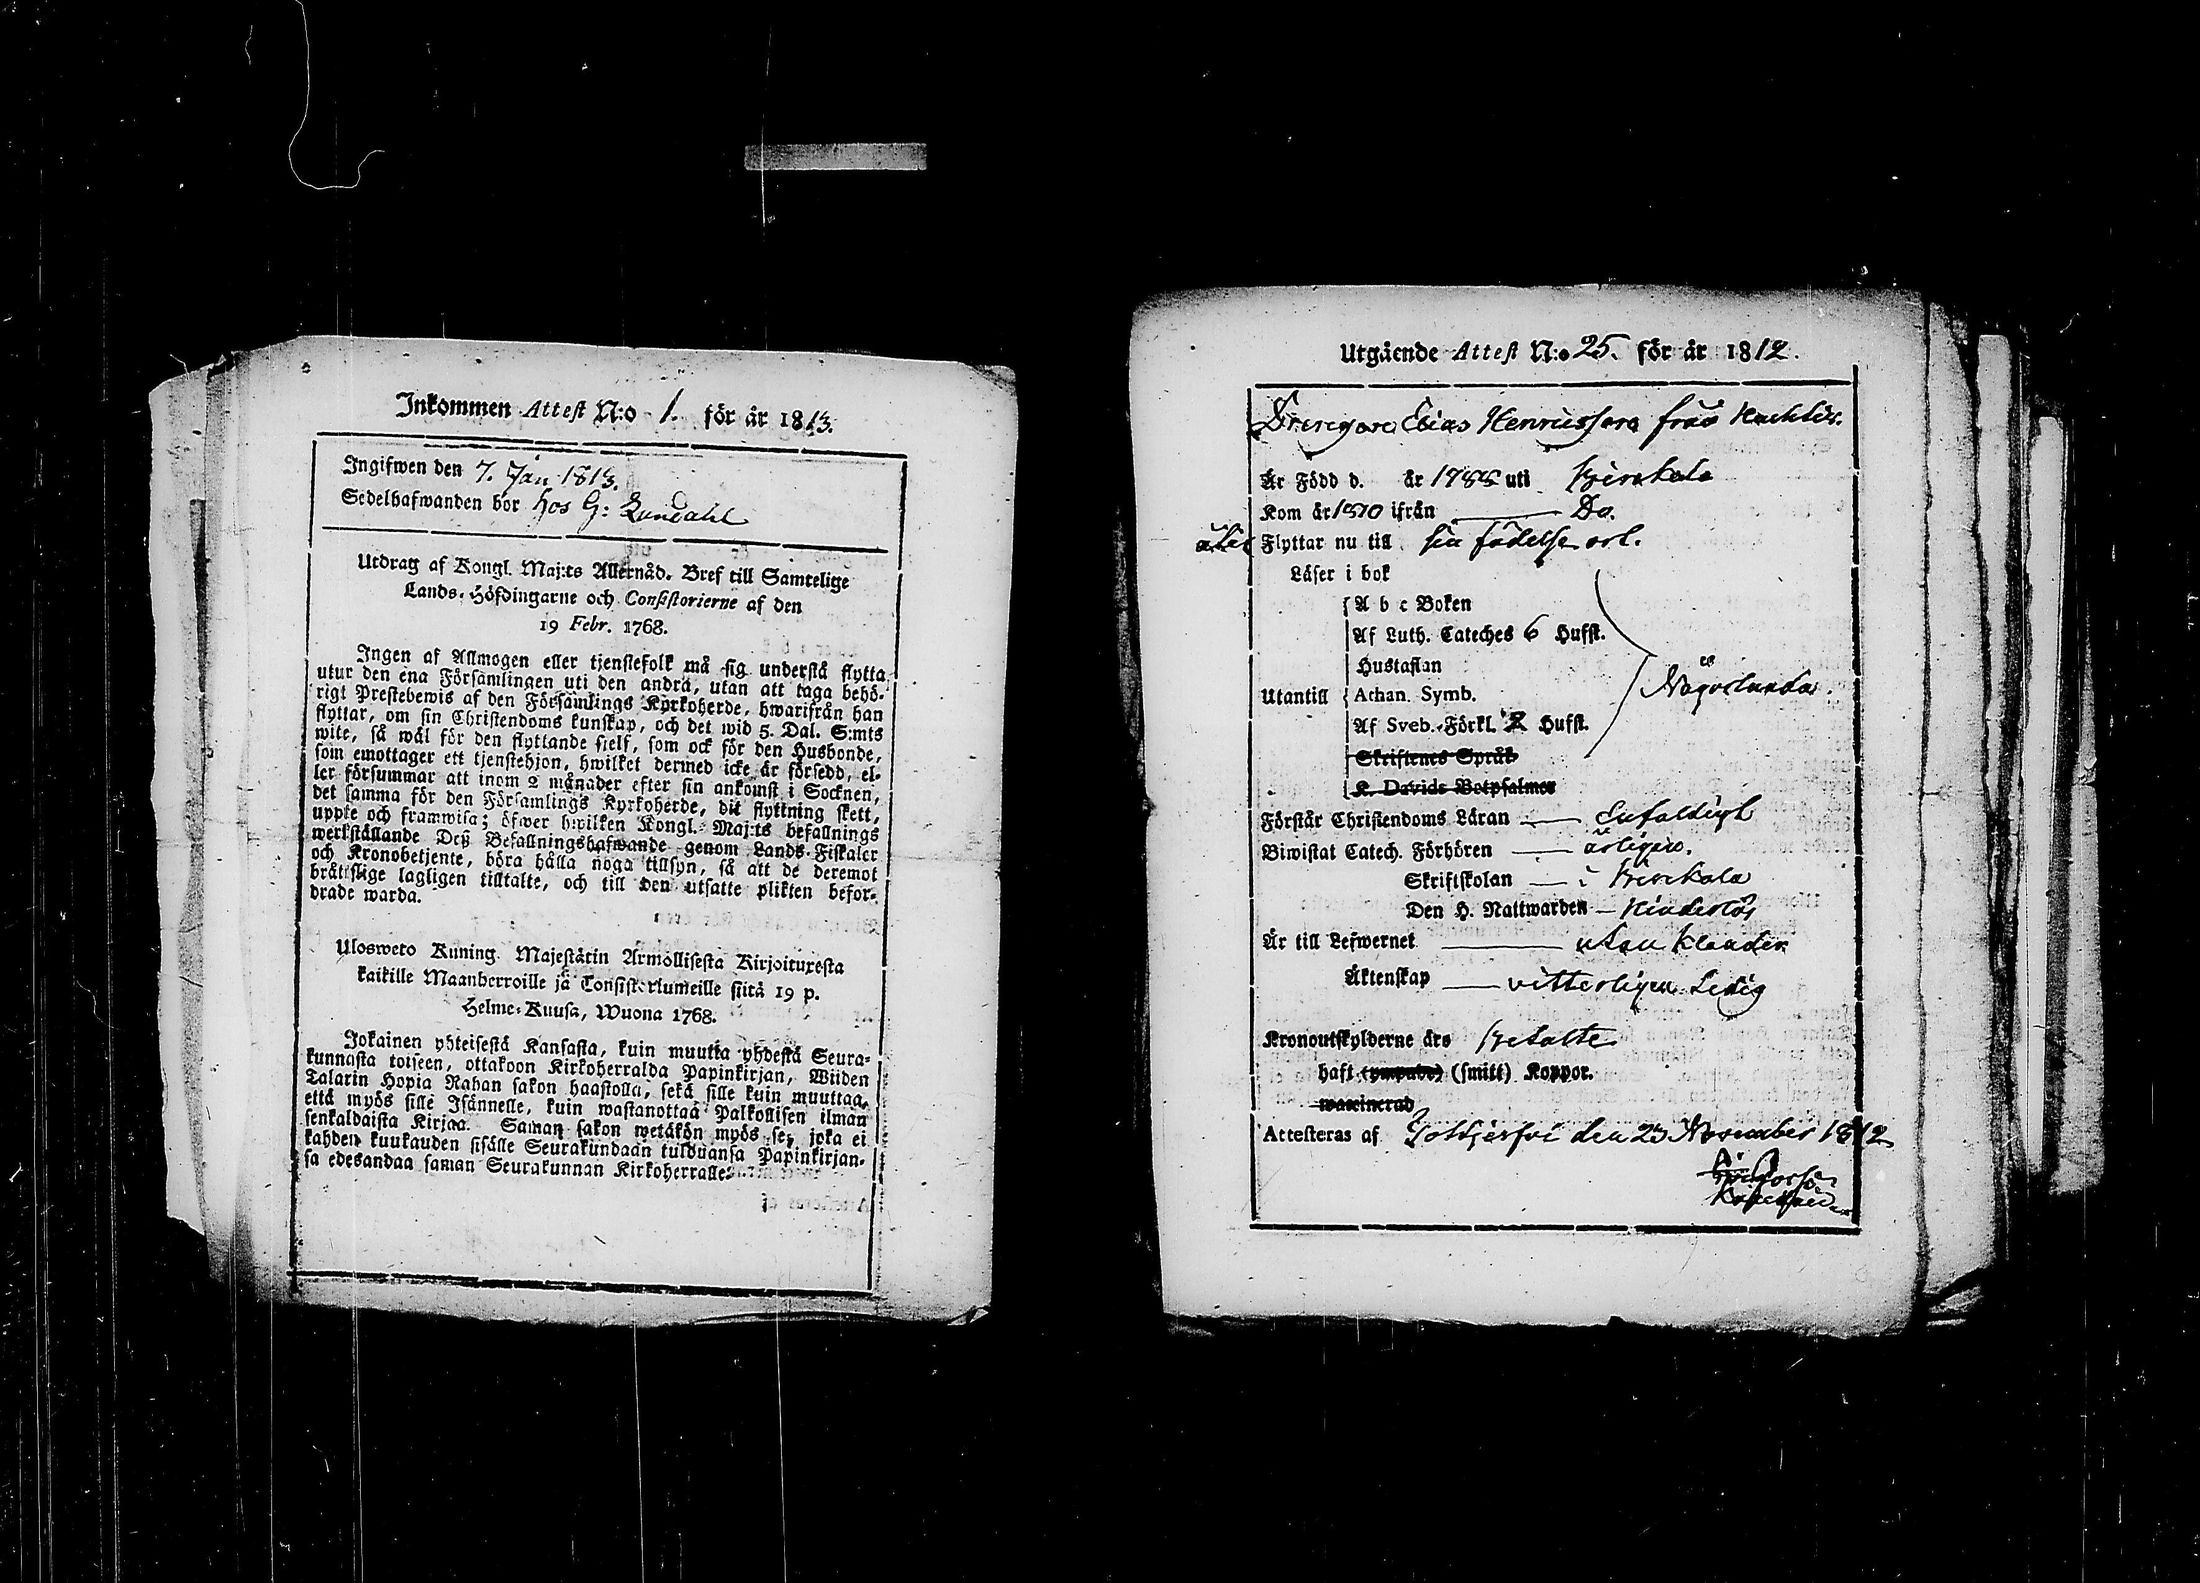 Inkommen Attest N:o 1. för år 1813.
Ingifwen den 7. Jan 1813.
Sedelhafwanden bor hos G: Lundahl
Utdrag af Kongl. Maj:ts Allernåd. Bref till Samtelige
Lands-Höfdingarne och Consistorierne af den
19 Febr. 1768.
Ingen af Allmogen eller tjenstefolk må sig understå flytta
utur den ena Församlingen uti den andra, utan att taga behö-
rigt Prestebewis af den Församlings Kyrkoherde, hwarifrån han
flyttar, om sin Christendoms kunskap, och det wid 5. Dal. S:mts
wite, så wäl för den flyttande sielf, som ock för den Husbonde,
som emottager ett tjenstehjon, hwilket dermed icke är försedd, el-
ler försummar att inom 2 månader efter sin ankomst i Socknen,
det samma för den Församlings Kyrkoherde, dit flyttning skett,
uppte och framwisa; öfwer hwilken Kongl. Maj:ts befallnings
werkställande Deß Befallningshafwande genom Lands-Fiskaler
och Kronobetjente, böra hålla noga tillsyn, så att de deremot
brättslige lagligen tilltalte, och till den utsatte plikten befor-
drade warda.
Ulosweto Kuning. Majestätin Armollisesta Kirjoituxesta
kaikille Maanherroille ja Consistoriumeille siitä 19 p.
Helme-Kuusa, Wuona 1768.
Jokainen yhteisestä Kansasta, kuin muutta yhdestä Seura-
kunnasta toiseen, ottakoon Kirkoherralda Papinkirjan, Wiiden
Talarin Hopia Rahan sakon haastolla, sekä sille kuin muuttaa,
että myös sille Isännelle, kuin wastanottaa Palkollisen ilman
senkaldaista Kirjaa. Saman sakon wetäkön myös se, joka ei
kahden kuukauden sisälle Seurakundaan tulduansa Papinkirjan-
sa edesandaa saman Seurakunnan Kirkoherralle.
Utgående Attest N:o 25. för år 1812.
Drengen Elias Henricsson från
Är Född d. år 1788 uti Birkala
Kom år 1810 ifrån Do.
åter Flyttar nu till sin födelse ort.
Läser i bok
A b c Boken
Af Luth. Cateches 6 Hufst.
Hustaflan
Utantill Athan. Symb.
Af Sveb. Förkl. 2 Hufst.
Skriftenes Språk
K. Davids Botpsalmer
Någorlunda.
Förstår Christendoms Läran Enfaldigt
Biwistat Catech. Förhören årligen.
Skriftskolan i Birkala
Den H. Nattwarden hinderlös
Är till Lefwernet utan klander
Äktenskap vitterligen Ledig
Kronoutskylderne äro betalte
haft (ympade) (smitt) Koppor.
waccinerad
Attesteras af den 23 November 1812